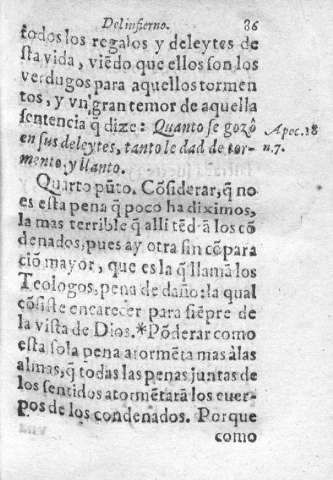 Del infierno. 86
todos los regalos y deleytes de
sta vida, viẽdo que ellos son los
verdugos para aquellos tormen
tos, y vn gran temor de aquella
sentencia q̃ dize: Quanto se gozô Apoc. 18
en sus deleytes, tanto le dad de tor- n. 7.
mento, y llanto.
Quarto pũto. Cõsiderar, q̃ no
es esta pena q̃ poco ha diximos,
la mas terrible q̃ alli tẽdrã los cõ
denados, pues ay otra sin cõpara
ciõ mayor, que es la q̃ llamã los
Teologos, pena de daño: la qual
cõsiste en carecer para siẽpre de
la vista de Dios.*Põderar como
esta sola pena atormẽta mas à las
almas, q̃ todas las penas juntas de
los sentidos atormẽtarã los cuer-
pos de los condenados. Porque
como